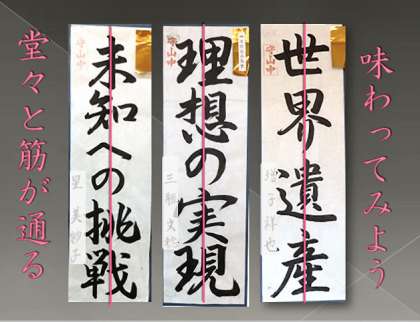 味わってみよう
世界遺産
守山中
理想の実現
守山中
未知への挑戦
守山中
星 美紗子
堂々と筋が通る